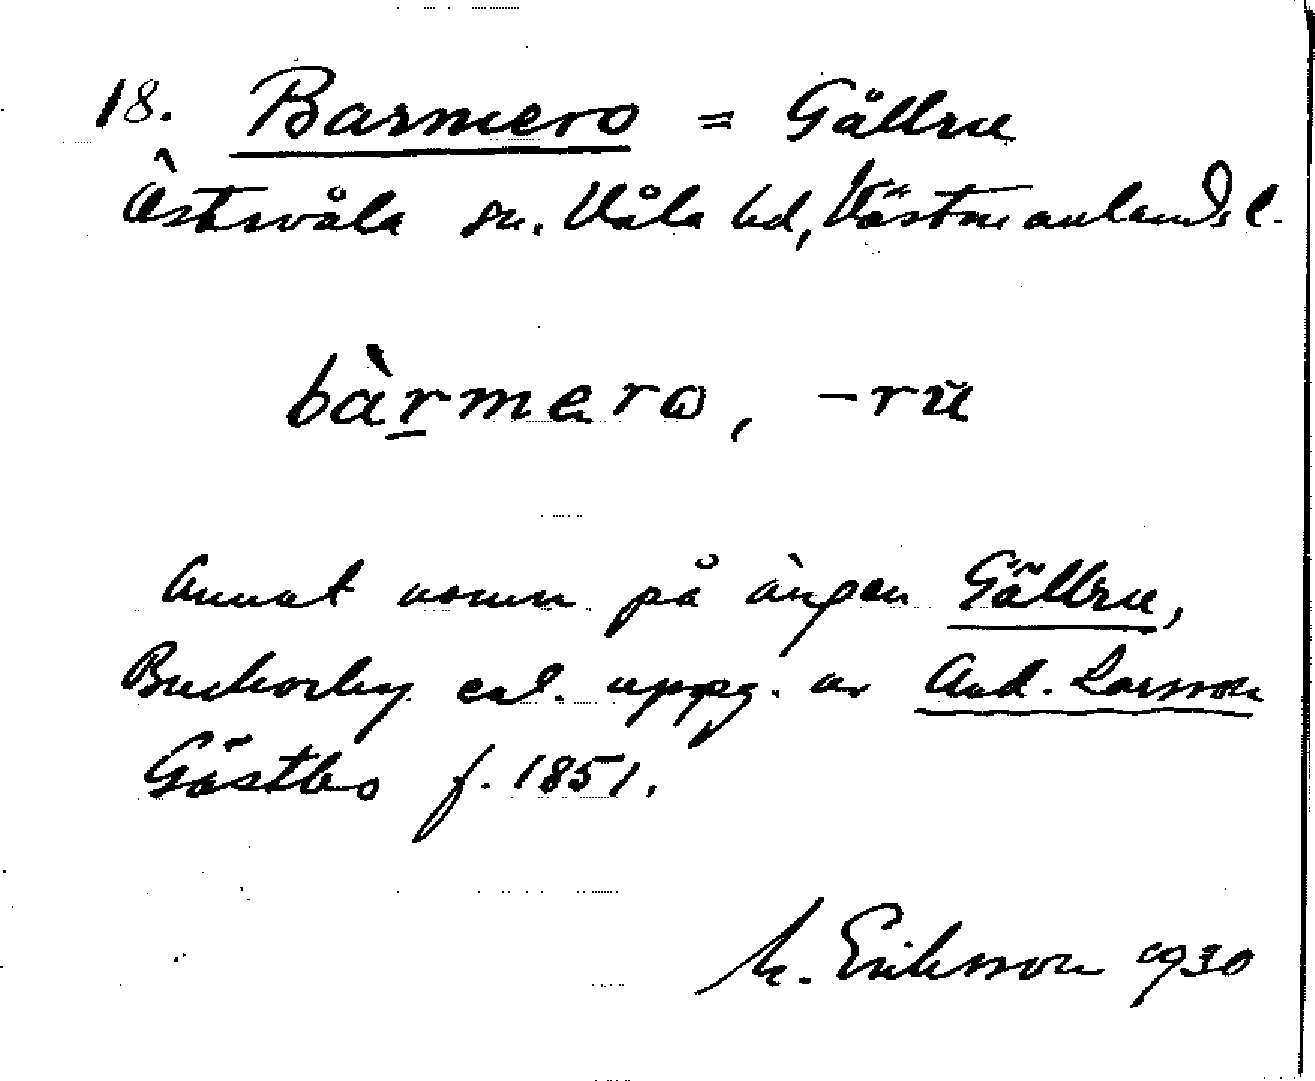 18. Barmero = Gällru
Östervåla sn. Våla hd, Västmanlands l.
bàrmero, -rŭ
Annat namn på ängen Gällru,
enl. uppg. av And. Larsson
Gästbo f. 1851.
M. Eriksson 1930